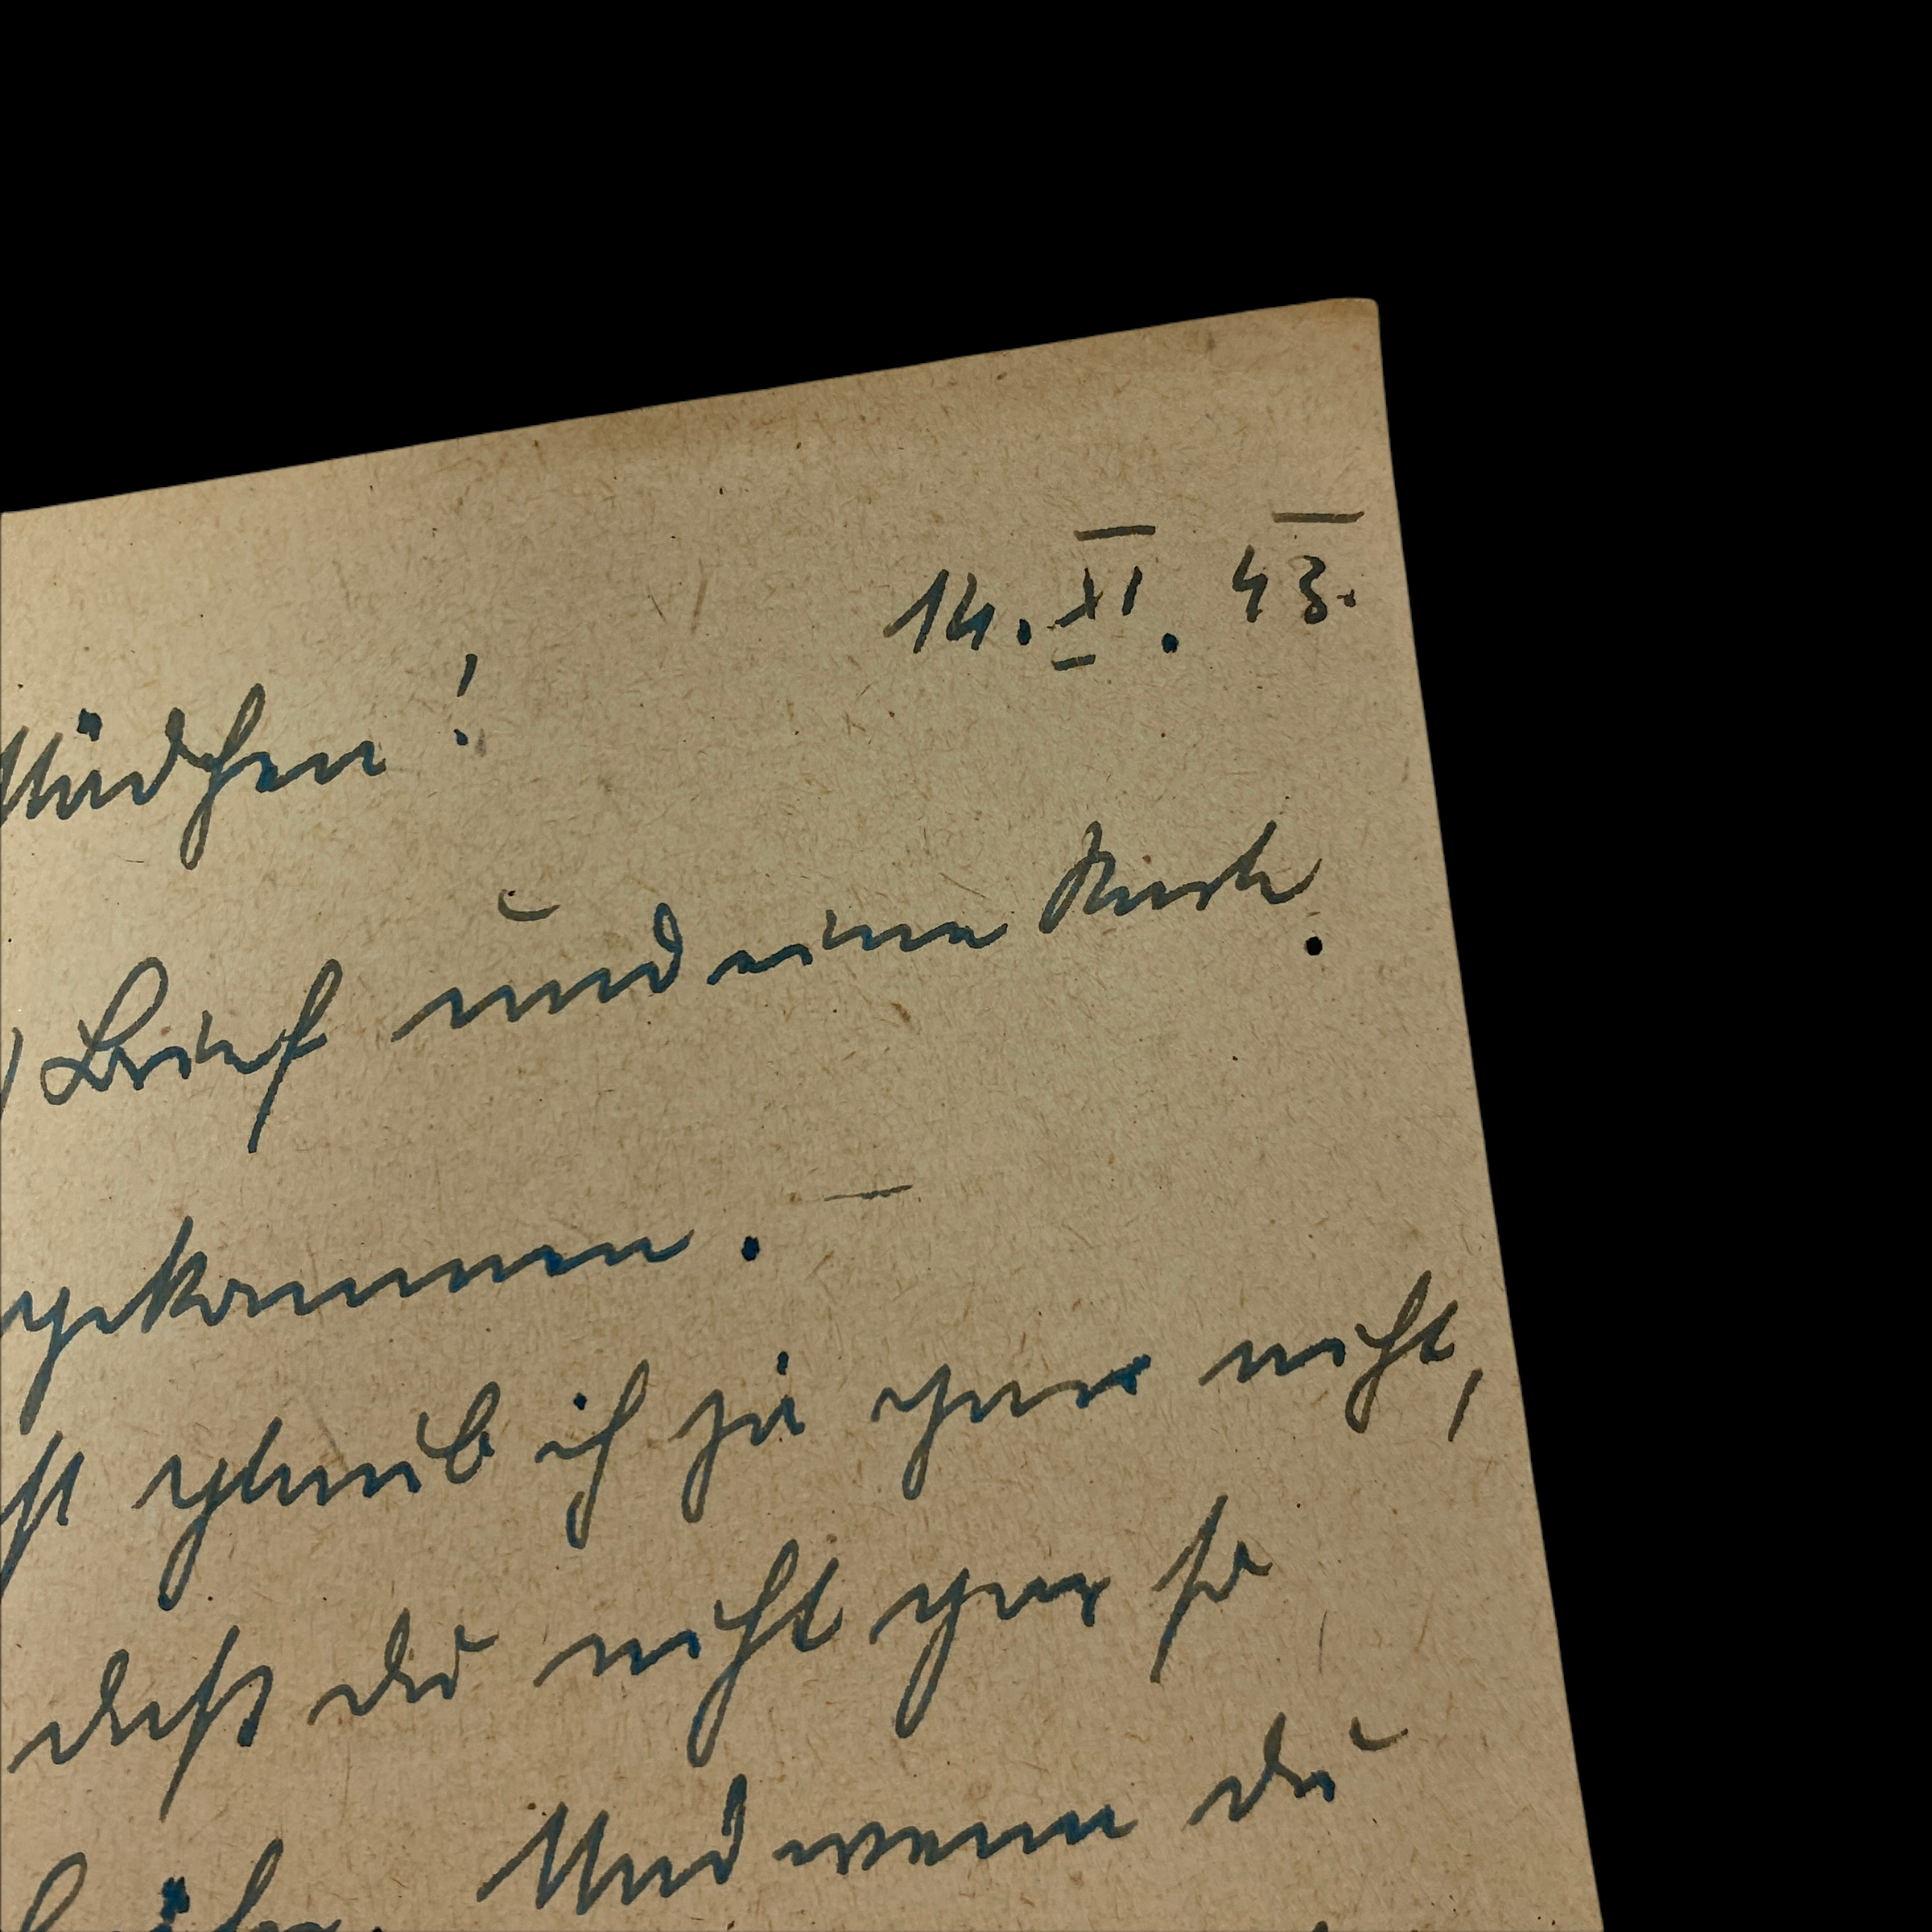 14. XI. 43.
Mädchen!
Brief und eine Karte
gekommen. —
glaub ich ja gar nicht,
daß du nicht gar so
Und wenn du